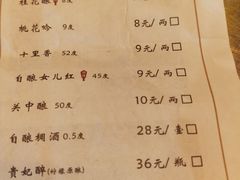 桂花酿 8度
桃花吟 9度 8元/两
十里香 52度 9元/两
自酿女儿红 45度 9元/两
关中酿 50度 10元/两
自酿稠酒 0.5度 28元/壶
贵妃醉(柠檬原酿) 36元/瓶